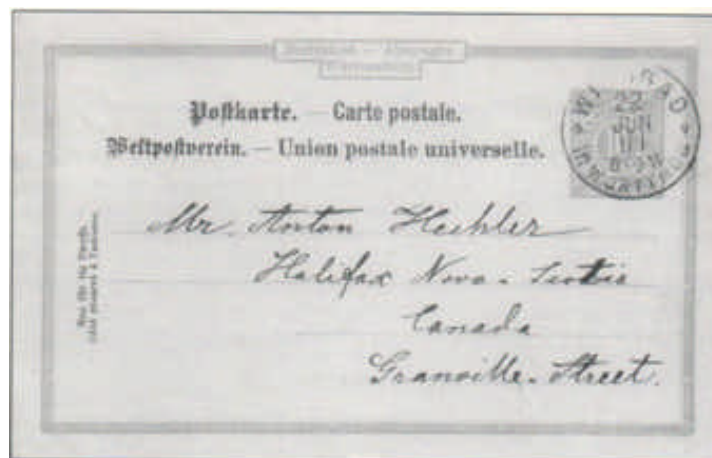 Postkarte. — Carte postale.
Weltpostverein. — Union postale universelle.
22
JUN
01
Mr. Anton Hechler
Halifax Nova-Scotia
Canada
Granville-Street.